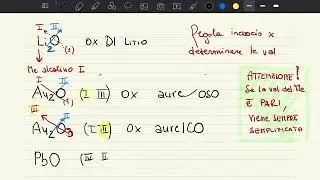 I II
Li₂O(s) OX DI LITIO
Regola incrocio x determinare le val
Me alcalino I
I II
Au₂O(s) (I III) OX aure/OSO
III II
Au₂O₃ (I III) OX aure/ICO
PbO (IV II
ATTENZIONE!
Se la val del Me
è PARI,
VIENE SEMPRE
SEMPLIFICATA